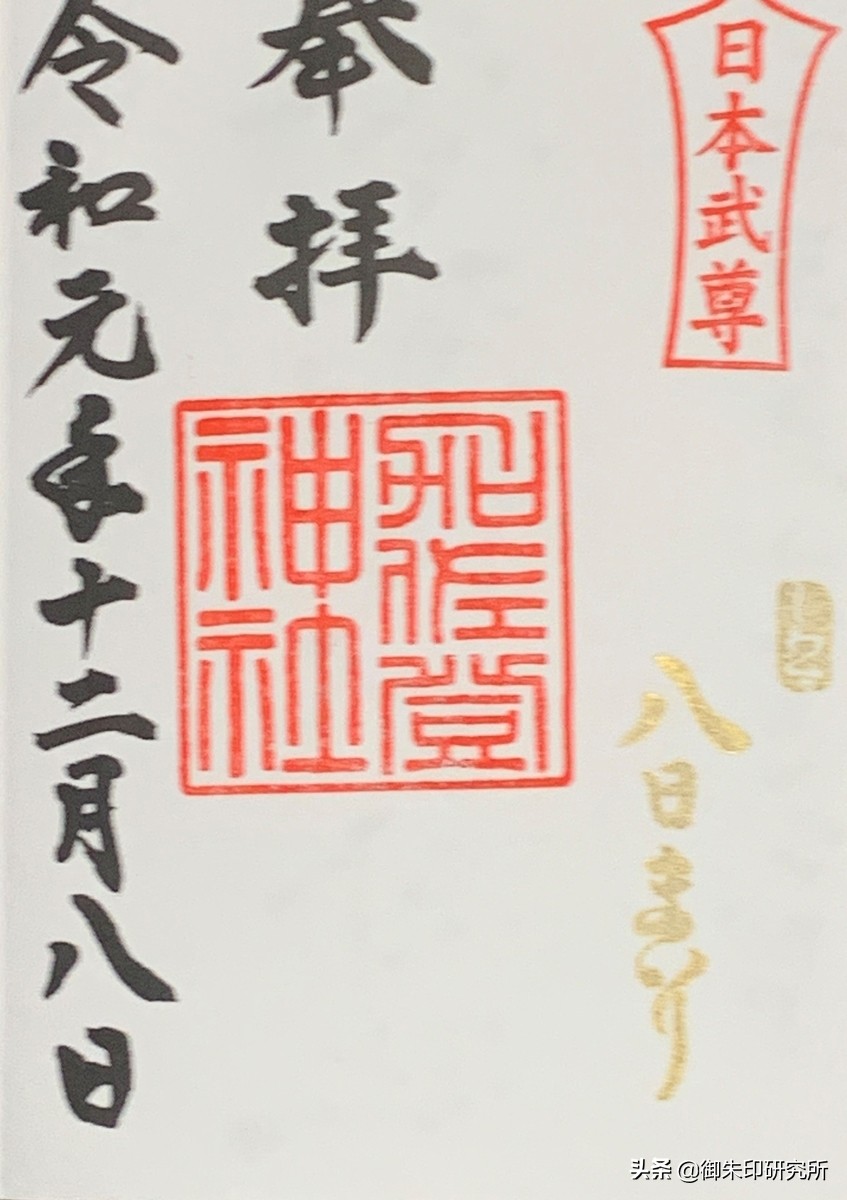 日本武尊
八日まいり
奉拝
加佐登
神社
令和元年十二月八日
头条 @御朱印研究所